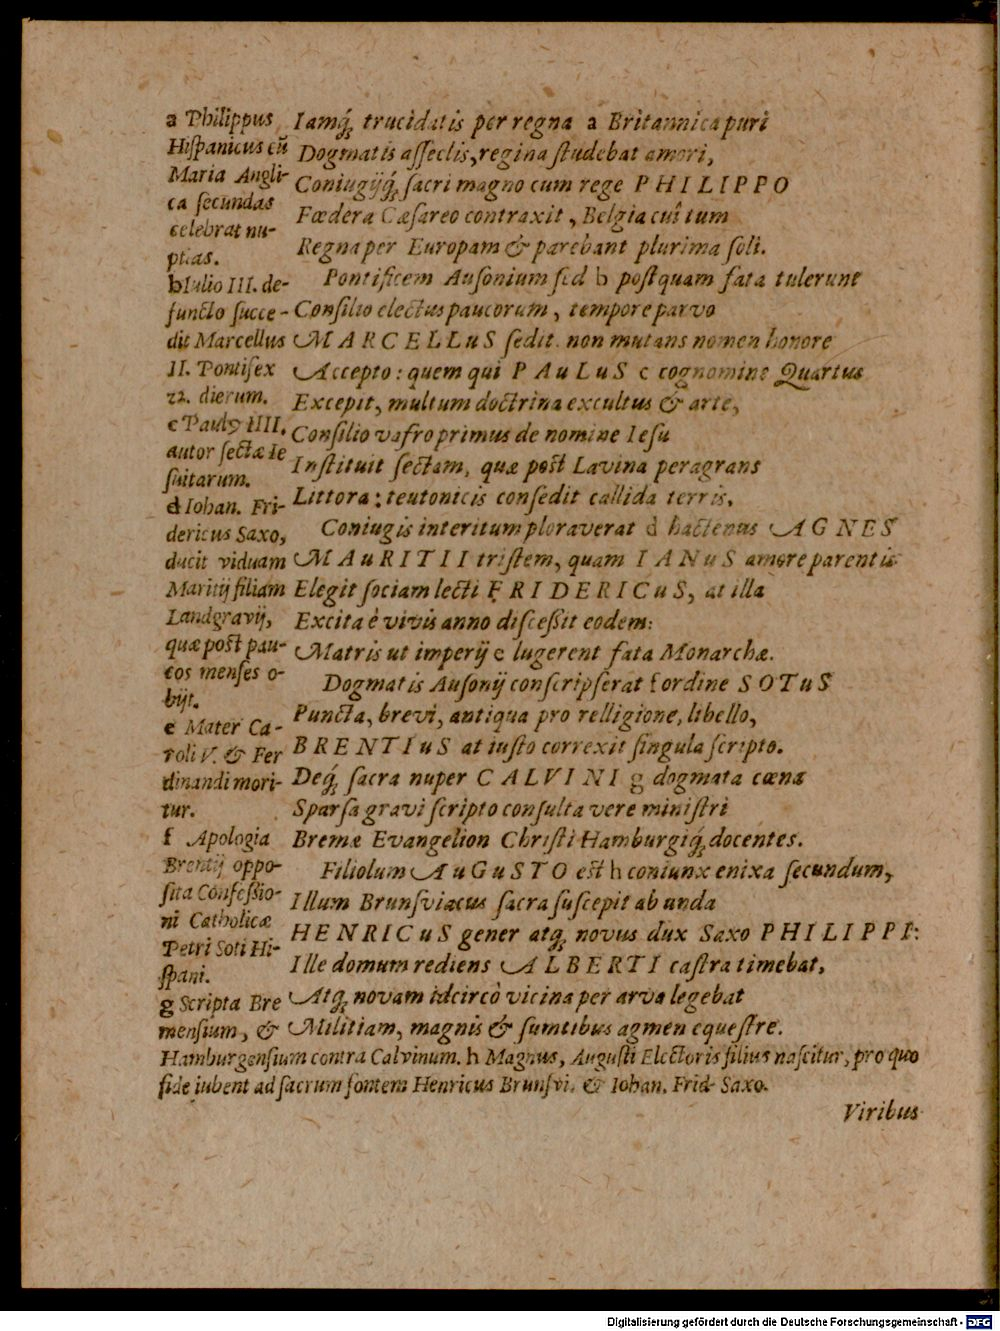 a Philippus
Hiſpanicus cũ
Maria Angli-
ca ſecundas
celebrat nu-
ptias.
b Iulio III. de-
functo ſucce-
dit Marcellus
II. Pontifex
22. dierum.
c Paulꝰ IIII.
autor ſectæ Ie
ſuitarum.
d Iohan. Fri-
dericus Saxo,
ducit viduam
Maritij filiam
Landgravij,
quæ poſt pau-
cos menſes o-
bijt.
e Mater Ca-
roli V. & Fer
dinandi mori-
tur.
f Apologia
Brentij oppo-
ſita Confeſsio-
ni Catholicæ
Petri Soti Hi-
ſpani.
g Scripta Bre
menſium, &
Hamburgenſium contra Calvinum. h Magnus, Auguſti Electoris filius naſcitur, pro quo
fide iubent ad ſacrum fontem Henricus Brunſvi. & Iohan. Frid. Saxo.
Iamq́; trucidatis per regna a Britannica puri
Dogmatis aſſeclis, regina ſtudebat amori,
Coniugijq́; ſacri magno cum rege PHILIPPO
Fœdera Cæſareo contraxit, Belgia cui tum
Regna per Europam & parebant plurima ſoli.
Pontificem Auſonium ſed b poſtquam fata tulerunt
Conſilio electus paucorum, tempore parvo
MARCELLuS ſedit. non mutans nomen honore
Accepto: quem qui PAuLuS c cognomine Quartus
Excepit, multum doctrina excultus & arte,
Conſilio vafro primus de nomine Ieſu
Inſtituit ſectam, quæ poſt Lavina peragrans
Littora: teutonicis conſedit callida terris.
Coniugis interitum ploraverat d hactenus AGNES
MAuRITII triſtem, quam IANuS amore parentis
Elegit ſociam lecti FRIDERICuS, at illa
Excita è vivis anno diſceſsit eodem:
Matris ut imperij e lugerent fata Monarchæ.
Dogmatis Auſonij conſcripſerat f ordine SOTuS
Puncta, brevi, antiqua pro relligione, libello,
BRENTIuS at iuſto correxit ſingula ſcripto.
Deq́; ſacra nuper CALVINI g dogmata cœna
Sparſa gravi ſcripto conſulta vere miniſtri
Bremæ Evangelion Chriſti Hamburgiq́; docentes.
Filiolum AuGuSTO eſt h coniunx enixa ſecundum,
Illum Brunſviacus ſacra ſuſcepit ab unda
HENRICuS gener atq́; novus dux Saxo PHILIPPI:
Ille domum rediens ALBERTI caſtra timebat,
Atq́; novam idcircò vicina per arva legebat
Militiam, magnis & ſumtibus agmen equeſtre.
Viribus
Digitalisierung gefördert durch die Deutsche Forschungsgemeinschaft - DFG